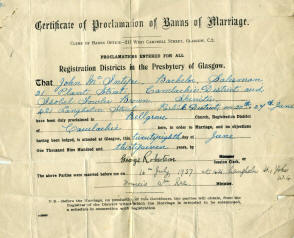 Certificate of Proclamation of Banns of Marriage.
CLERK OF BANNS OFFICE—217 WEST CAMPBELL STREET, GLASGOW, C.2.
PROCLAMATIONS ENTERED FOR ALL
Registration Districts in the Presbytery of Glasgow.
That John McIntyre Bachelor Salesman
21 Plant Street Camlachie District and
Isobel Fowler Brown Spinster
42 Langholm Street District, on 20th & 27th June
Bellgrove Church, Registration District of
Camlachie here, in order to Marriage, and no objections
having been lodged, is attested at Glasgow, this twentyeighth day of June
One Thousand Nine Hundred and Thirtyseven years.
George Robertson
Session Clerk.
The above Parties were married by me on 16th July, 1937 at 42 Langholm St.
Minister.
N.B.—Before the Marriage, on production of this Certificate, the parties will obtain, from the
Registrar of the District within which the Marriage is intended to be solemnized,
a schedule in connection with registration.